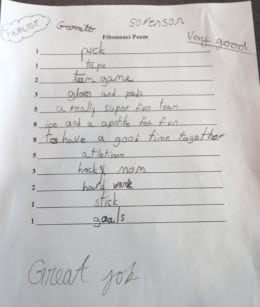 FINALIST
Garrett sorenson
Very good
Fibonnaci Poem
1 puck
1 tape
2 team game
3 gloves and pads
5 a really super fun team
8 ice and a apetite for fun
8 to have a good time together
5
3 hockey mom
2 hard work
1 stick
1 goals
Great job